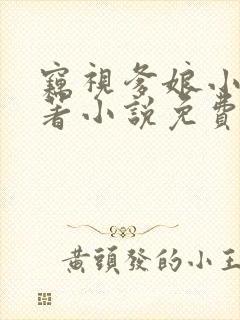 窺視爹娘小
著小說免費
黃頭發的小王